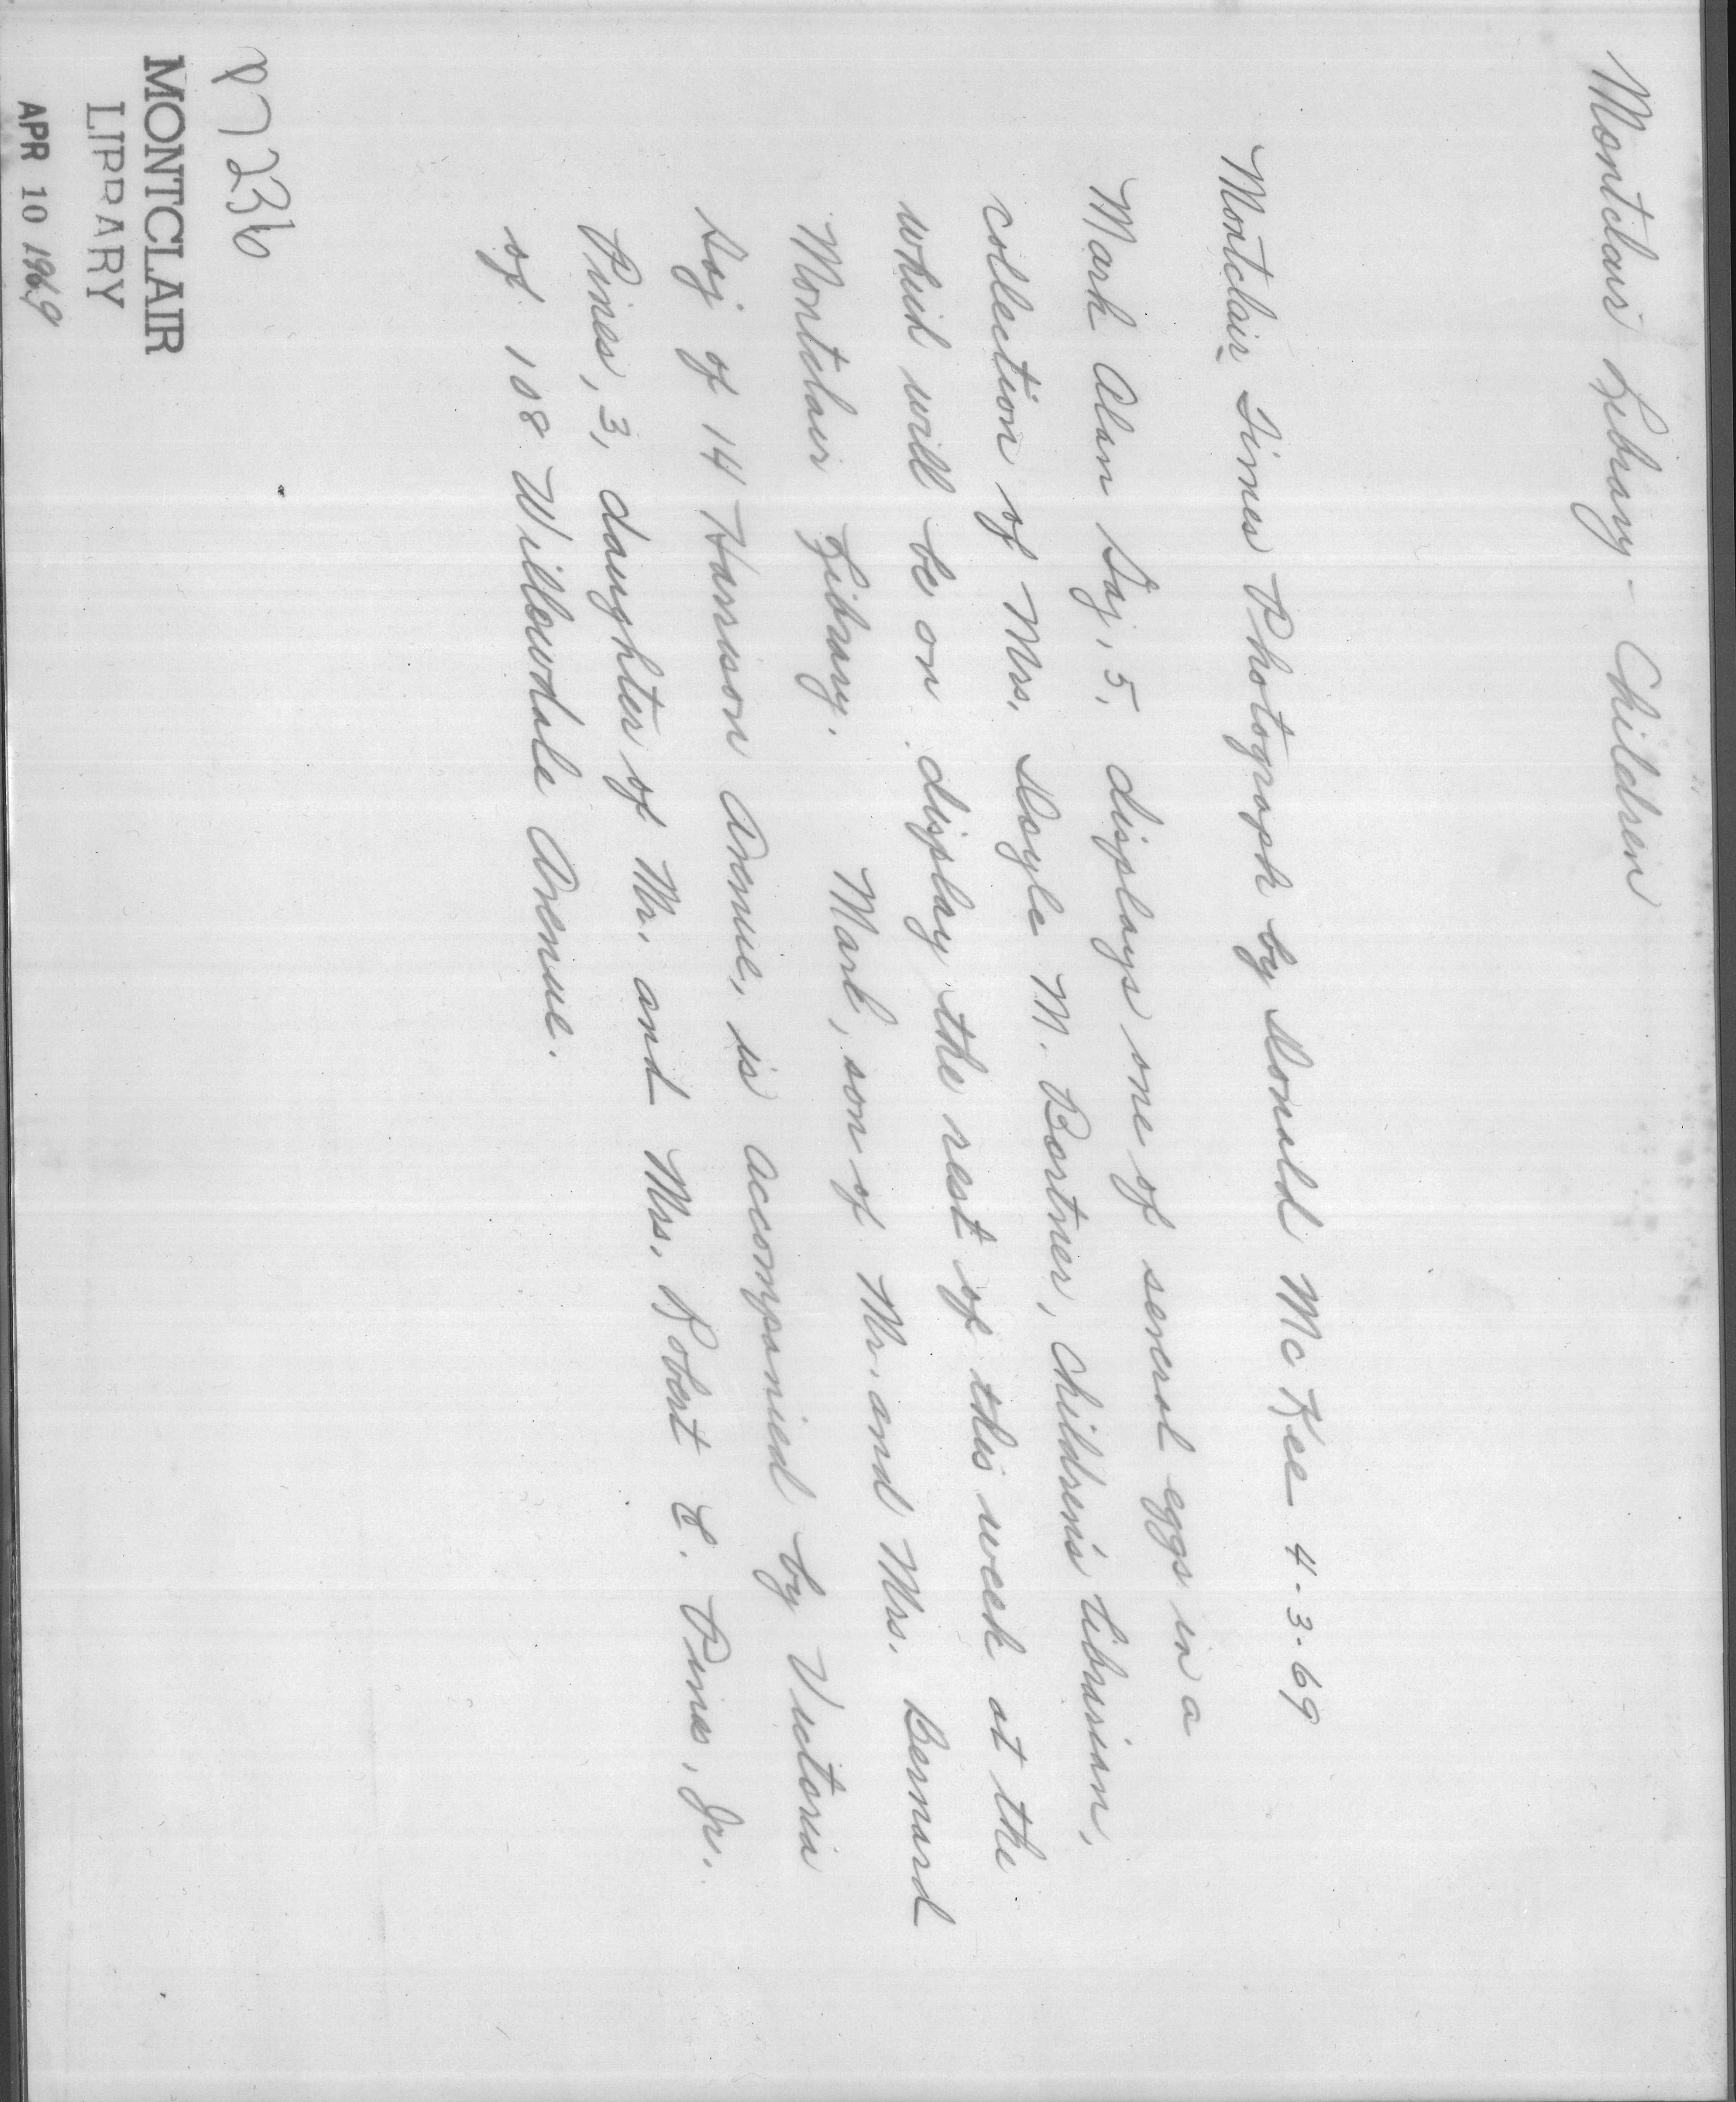 Montclair Library - Children
Montclair Times Photograph by Donald McKee 4-3-69
Mark Alan 5, displays one of several eggs in a
collection of Mrs. Doyle M. Bortner, children's librarian,
which will be on display the rest of this week at the
Montclair Library. Mark, son of Mr. and Mrs. Bernard
of 14 Harrison Avenue, is accompanied by Victoria
Pines, 3, daughter of Mr. and Mrs. Robert E. Pines, Jr.
of 108 Willowdale Avenue.
P7236
MONTCLAIR
LIBRARY
APR 10 1969